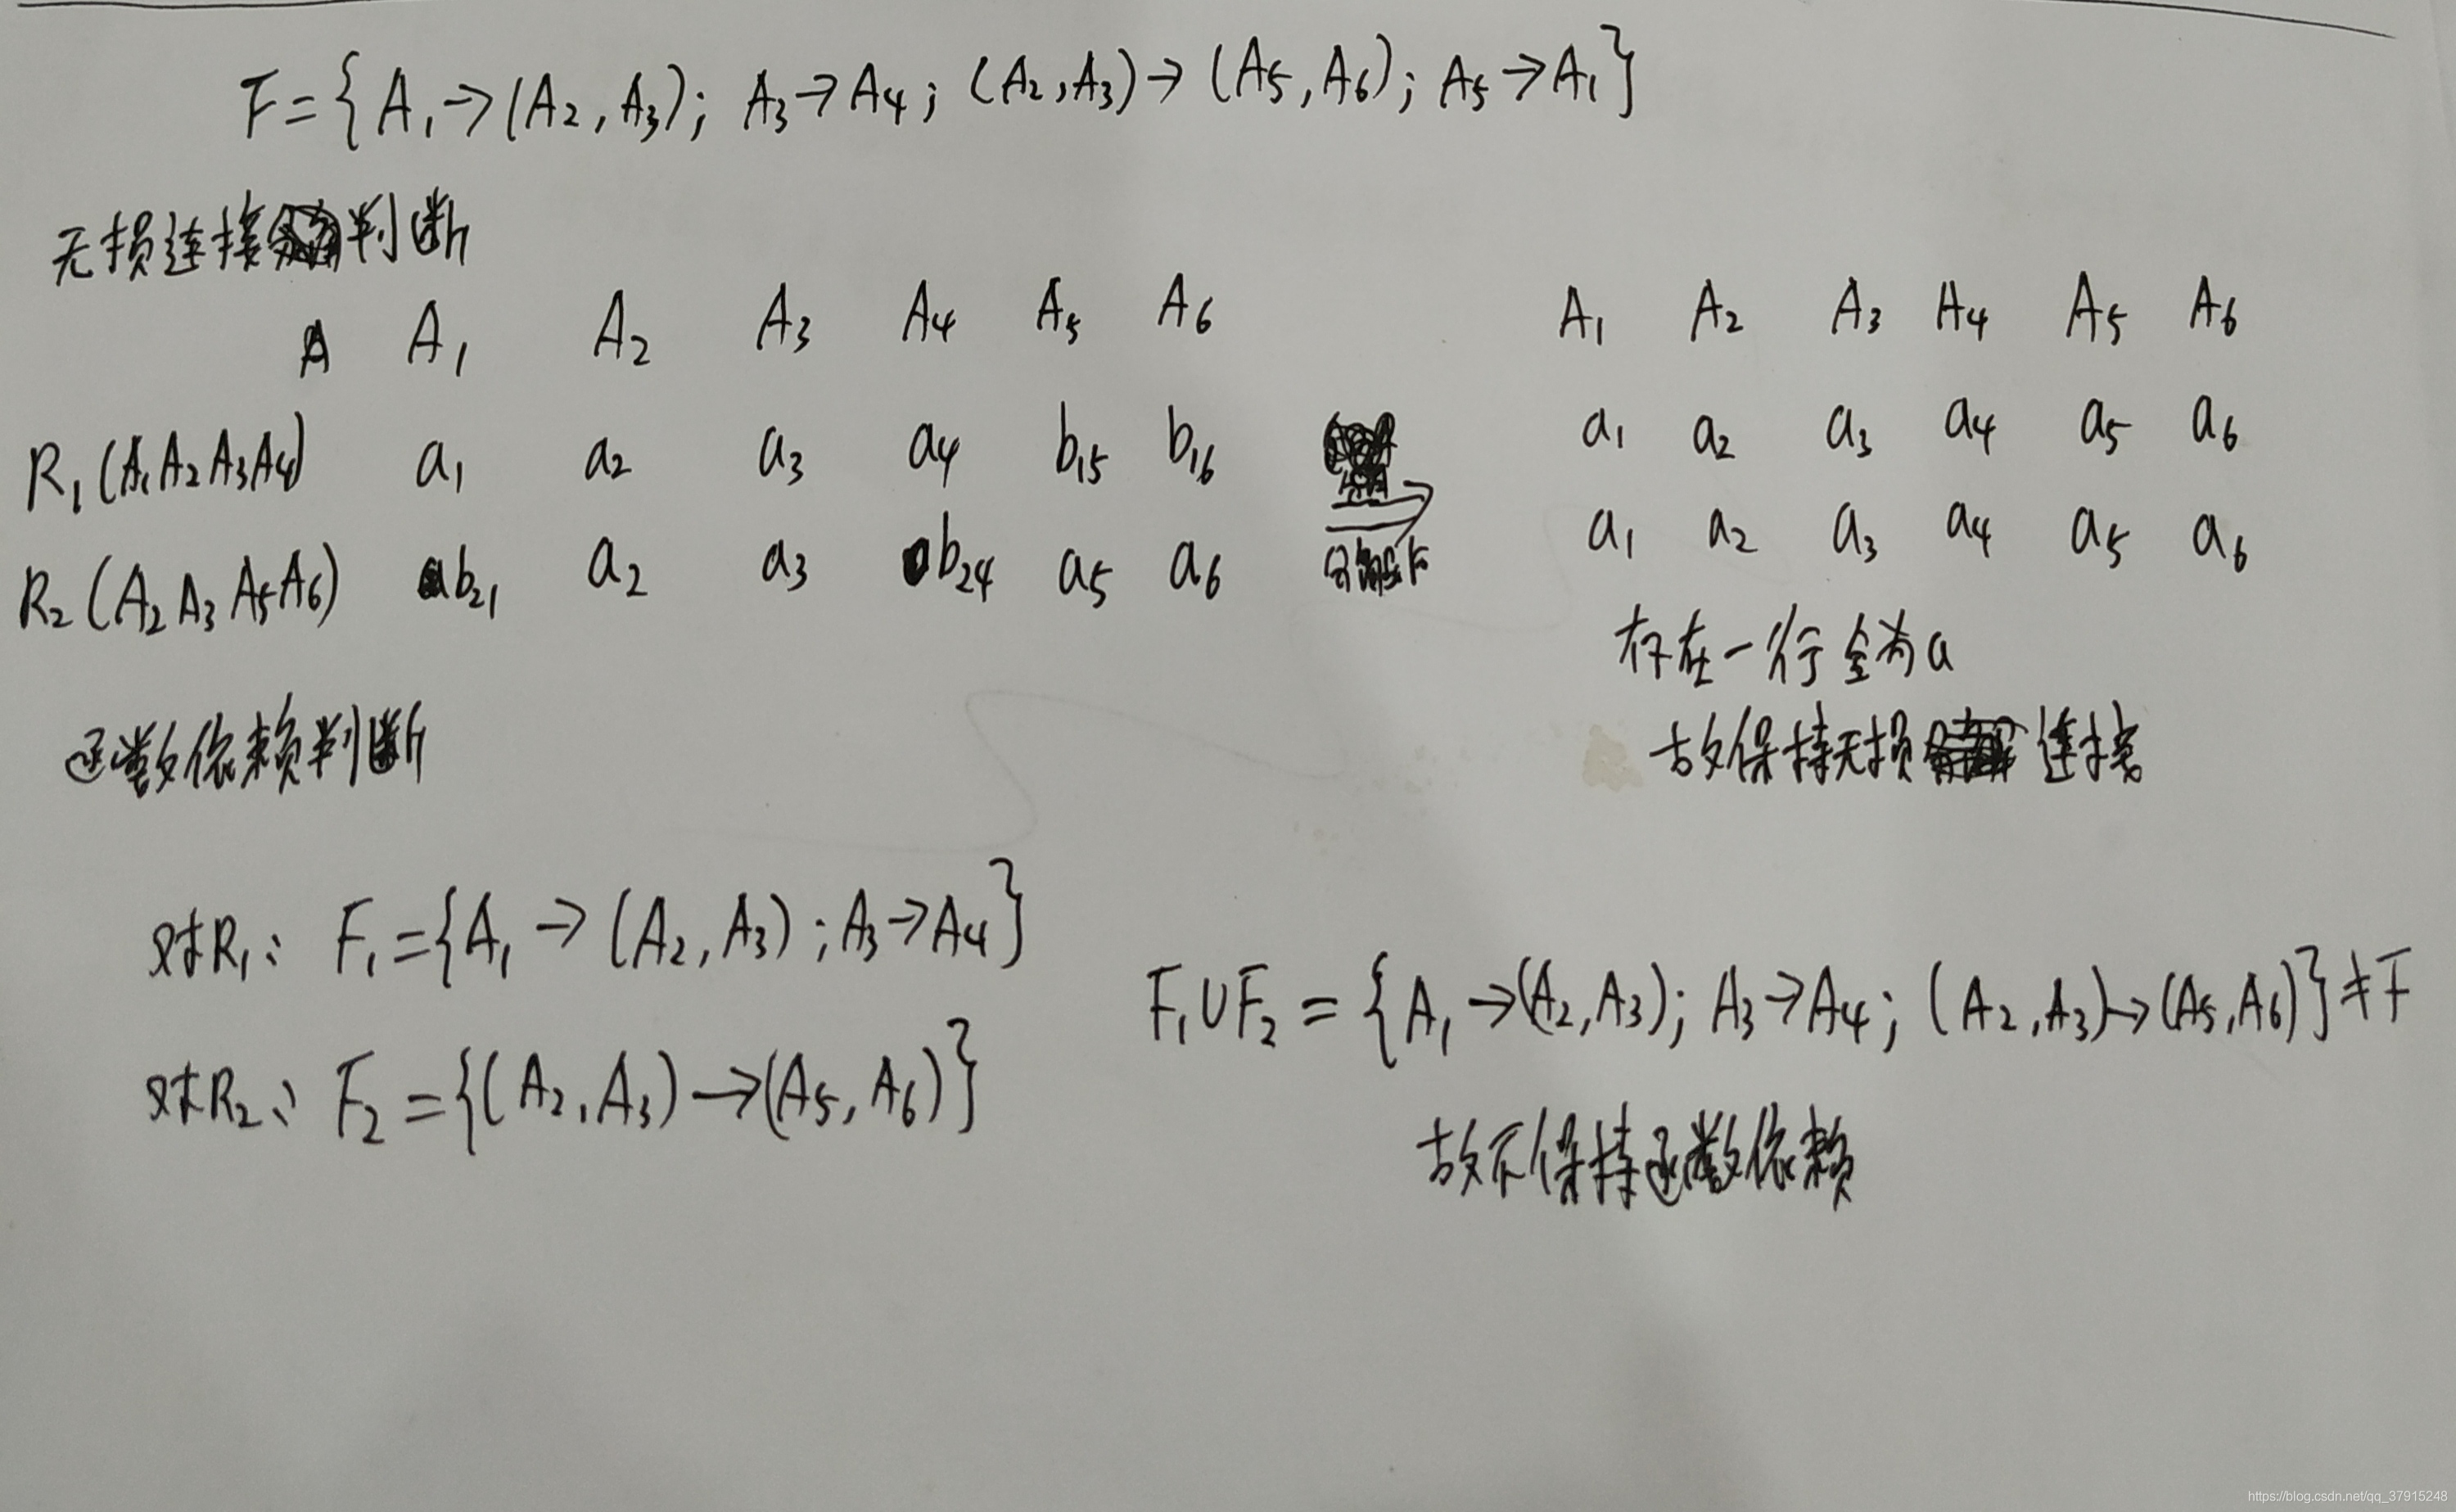 F={A₁→(A₂,A₃); A₃→A₄; (A₂,A₃)→(A₅,A₆); A₅→A₁}
无损连接判断
A₁ A₂ A₃ A₄ A₅ A₆
R₁(A₁A₂A₃A₄) a₁ a₂ a₃ a₄ b₁₅ b₁₆
R₂(A₂A₃A₅A₆) b₂₁ a₂ a₃ b₂₄ a₅ a₆
A₁ A₂ A₃ A₄ A₅ A₆
a₁ a₂ a₃ a₄ a₅ a₆
a₁ a₂ a₃ a₄ a₅ a₆
存在一行全为a
故保持无损连接
函数依赖判断
对R₁: F₁={A₁→(A₂,A₃);A₃→A₄}
对R₂: F₂={(A₂,A₃)→(A₅,A₆)}
F₁∪F₂={A₁→(A₂,A₃); A₃→A₄; (A₂,A₃)→(A₅,A₆)}≠F
故不保持函数依赖
https://blog.csdn.net/qq_37915248